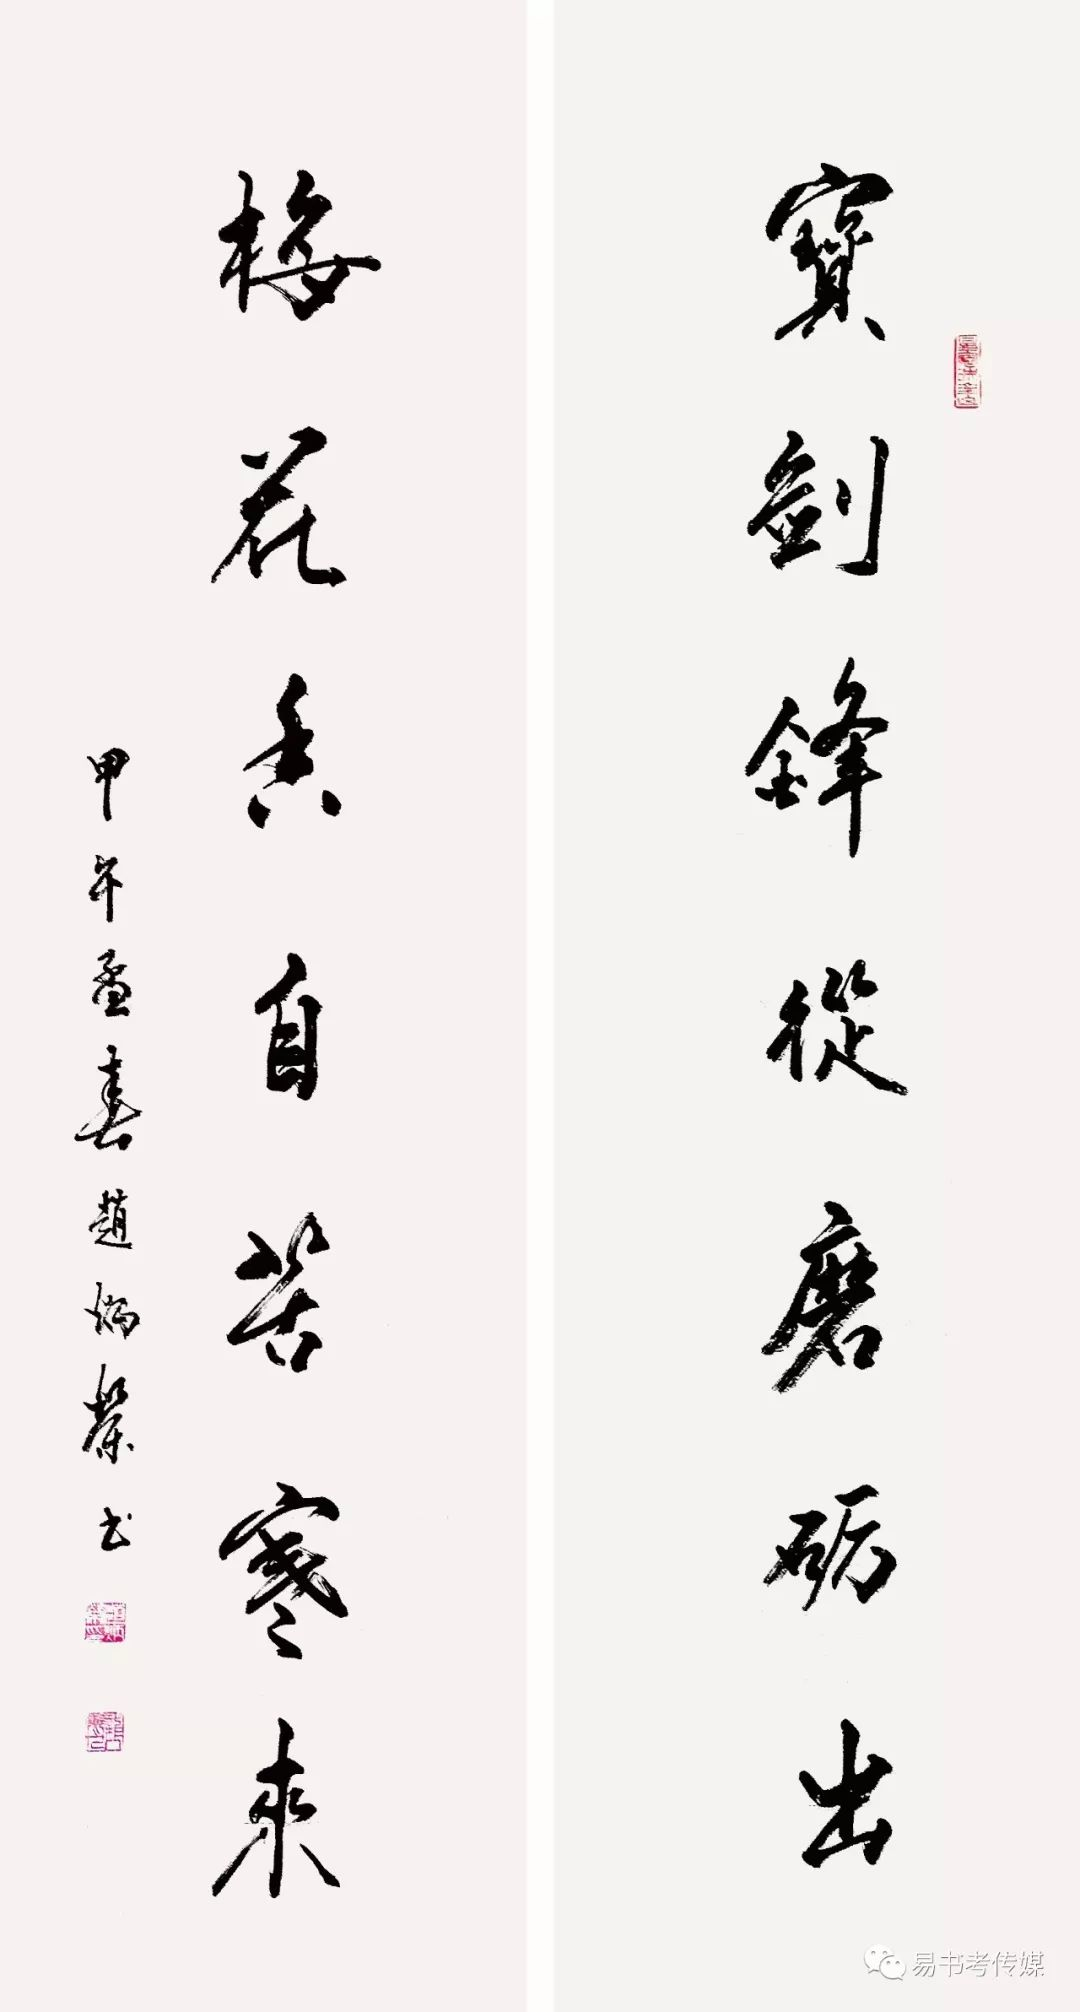 寶劍鋒從磨砺出
梅花香自苦寒來
甲午孟春趙炳榮书
易书考传媒